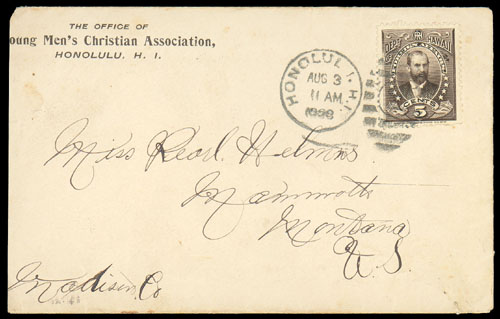 THE OFFICE OF
oung Men's Christian Association,
HONOLULU. H. I.
HONOLULU. H. I.
AUG 3
11 AM
1898
DEPT HAWAII
CENTS
5
Miss Pearl Helmns
Mammoth
Montana
U.S
Madison Co